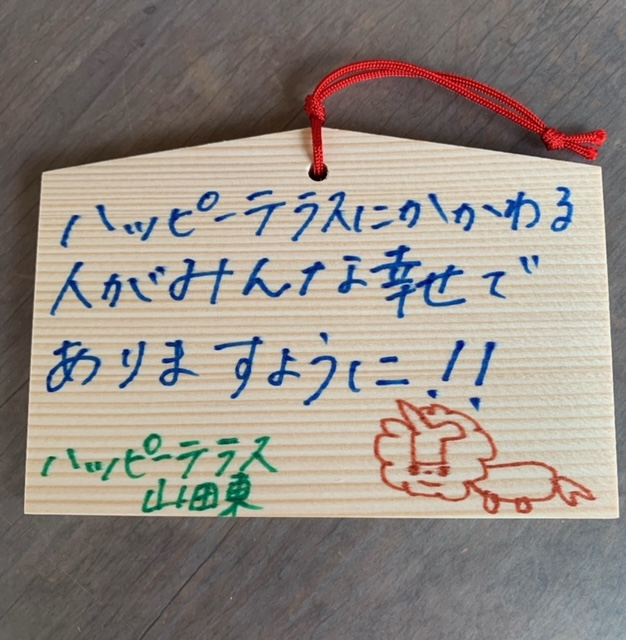 ハッピーテラスにかかわる
人がみんなな幸せで
ありますように!!
ハッピーテラス
山田東